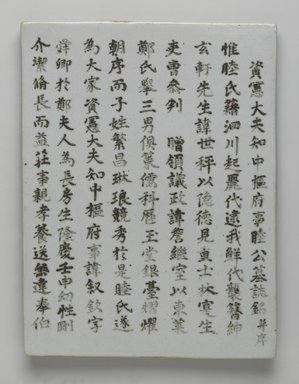 資憲大夫知中樞府事睦公墓誌銘 并序
惟睦氏籍泗川起麗代逮我鮮代襲簪紳
玄軒先生諱世秤以德見重士坎寔生
吏曹參判 贈領議政諱詹繼室以東萊
鄭氏擧三男俱業儒科歷玉堂銀臺燿燿
朝序而子姓繁昌琳琅競秀於是睦氏遂
為大家資憲大夫知中樞府事諱叙敍字
擇卿於鄭夫人為長房生隆慶壬申幼性剛
介潔脩長而益莊事親孝養送無違奉伯